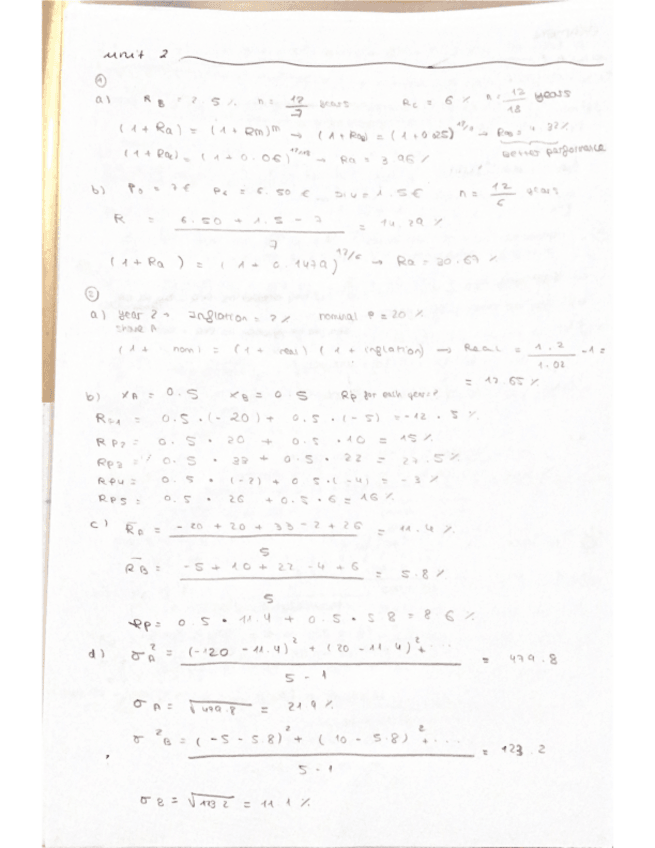 unit 2
①
a) R_B = 2.5 % n = 12/7 years R_C = 6 % n = 12/18 years
(1 + Ra) = (1 + Rm)^m → (1 + Ra) = (1 + 0.025)^12/7 → Ra = 4.32%
(1 + Ra) = (1 + 0.06)^12/18 → Ra = 3.96 % better performance
b) P0 = 7 € P1 = 6.50 € Div = 1.5 € n = 12/6 years
R = (6.50 + 1.5 - 7)/7 = 14.29 %
(1 + Ra) = (1 + 0.1429)^12/6 → Ra = 30.67 %
②
a) year 2 → inflation = 2% nominal = 20 %
share A
(1 + nom) = (1 + real) (1 + inflation) → Real = 1.2/1.02 - 1 =
= 17.65 %
b) XA = 0.5 XB = 0.5 Rp for each year
Rp1 = 0.5 · (-20) + 0.5 · (-5) = -12.5 %
Rp2 = 0.5 · 20 + 0.5 · 10 = 15 %
Rp3 = 0.5 · 33 + 0.5 · 22 = 27.5 %
Rp4 = 0.5 · (-2) + 0.5 · (-4) = -3 %
Rp5 = 0.5 · 26 + 0.5 · 6 = 16 %
c) R̄A = (-20 + 20 + 33 - 2 + 26)/5 = 11.4 %
R̄B = (-5 + 10 + 22 - 4 + 6)/5 = 5.8 %
Rp = 0.5 · 11.4 + 0.5 · 5.8 = 8.6 %
d) σ²A = ((-20 - 11.4)² + (20 - 11.4)² + ...)/(5 - 1) = 479.8
σA = √479.8 = 21.9 %
σ²B = ((-5 - 5.8)² + (10 - 5.8)² + ...)/(5 - 1) = 123.2
σB = √123.2 = 11.1 %